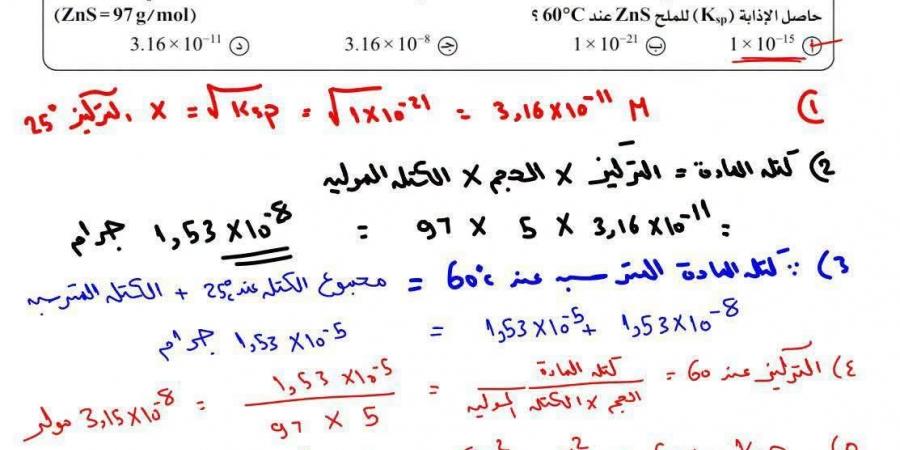 حاصل الإذابة (Ksp) للملح ZnS عند 60°C ؟ (ZnS = 97 g/mol)
أ 1 × 10⁻¹⁵ ب 1 × 10⁻²¹ ج 3.16 × 10⁻⁸ د 3.16 × 10⁻¹¹
1) التركيز 25° X = √Ksp = √1X10⁻²¹ = 3,16X10⁻¹¹ M
2) كتلة المادة = التركيز X الحجم X الكتله الموليه
= 3,16X10⁻¹¹ X 5 X 97 = 1,53 X10⁻⁸ جرام
3) ∵ كتله المادة المترسبه عند 60°c = مجموع الكتله عند 25°c + الكتله المترسبه
1,53X10⁻⁵ + 1,53X10⁻⁸ = 1,53 X10⁻⁵ جرام
٤) التركيز عند 60 = كتله المادة / الحجم X الكتله الموليه = 1,53 X10⁻⁵ / 97 X 5 = 3,15X10⁻⁸ مولر